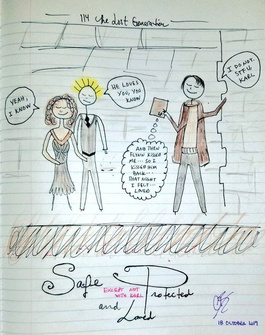 114 The Lost Generation
YEAH,
I KNOW
HE LOVES
YOU, YOU
KNOW
I DO NOT.
STFU
KARL
AND THEN
FLYNN KISSED
ME... SO I
KISSED HIM
BACK...
THAT NIGHT
I FELT...
LOVED
Safe Protected
EXCEPT NOT
WITH KARL
and Loved
18 OCTOBER 2019